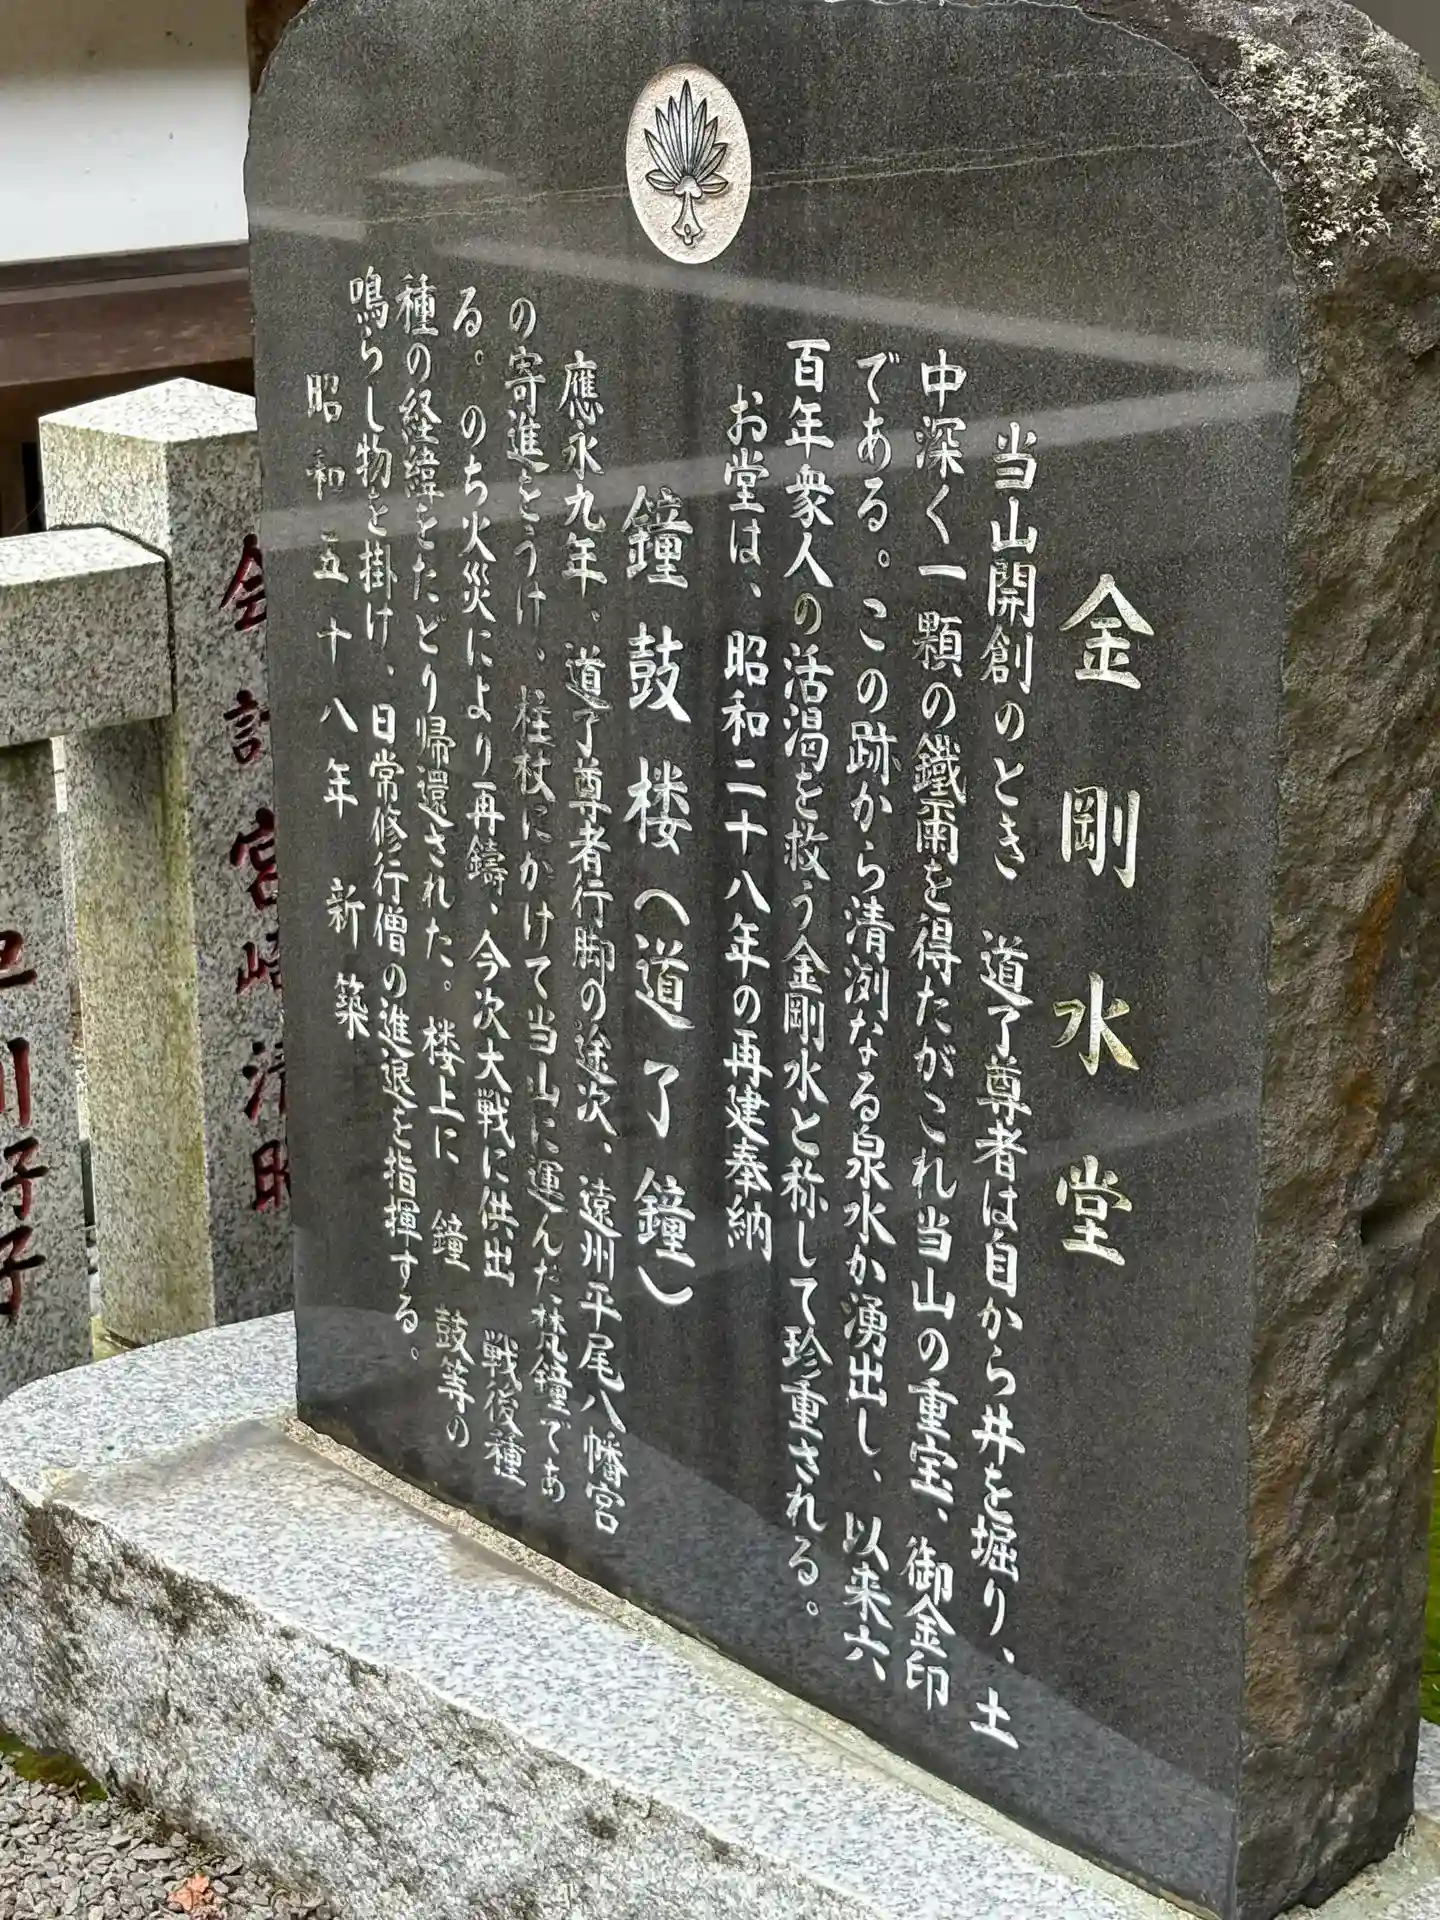 金剛水堂
当山開創のとき 道了尊者は自から井を堀り、土
中深く一顆の鐵印を得たがこれ当山の重宝、御金印
である。この跡から清洌なる泉水か湧出し、以来六
百年衆人の活渇を救う金剛水と称して珍重される。
お堂は、昭和二十八年の再建奉納
鐘鼓楼(道了鐘)
應永九年。道了尊者行脚の途次、遠州平尾八幡宮
の寄進をうけ、柱杖にかけて当山に運んだ梵鐘であ
る。のち火災により再鑄、今次大戦に供出 戦後種
種の経緯をたどり帰還された。楼上に 鐘 鼓等の
鳴らし物を掛け、日常修行僧の進退を指揮する。
昭和五十八年 新築
宮崎清昭